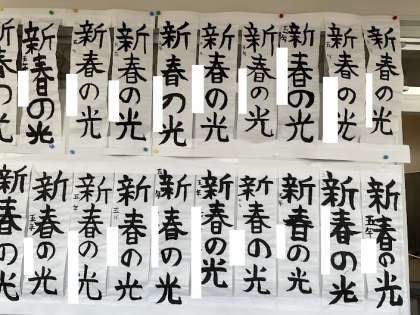 新春の光
新春の光
新春の光
新春の光
新春の光
新春の光
新春の光
新春の光
新春の光
新春の光
新春の光
五年
新春の光
新春の光
新春の光
新春の光
新春の光
新春の光
新春の光
新春の光
五年
新春の光